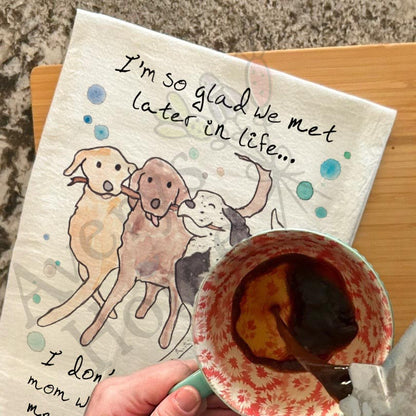 I'm so glad we met
later in life...
I don'
mom w